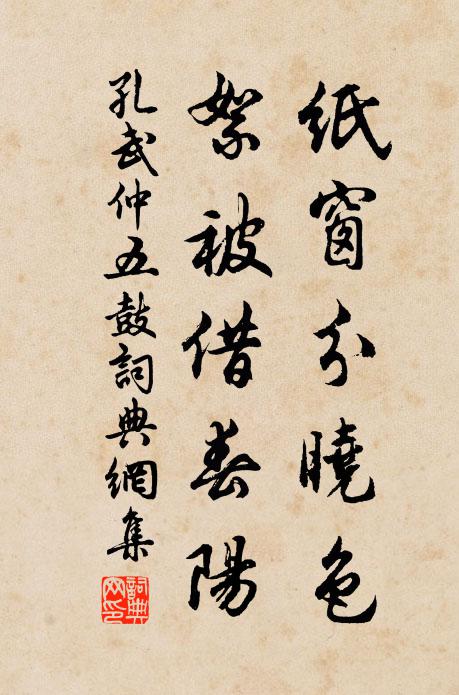 紙窗分曉色
絮被借春陽
孔武仲五鼓詞典網集
詞典網印